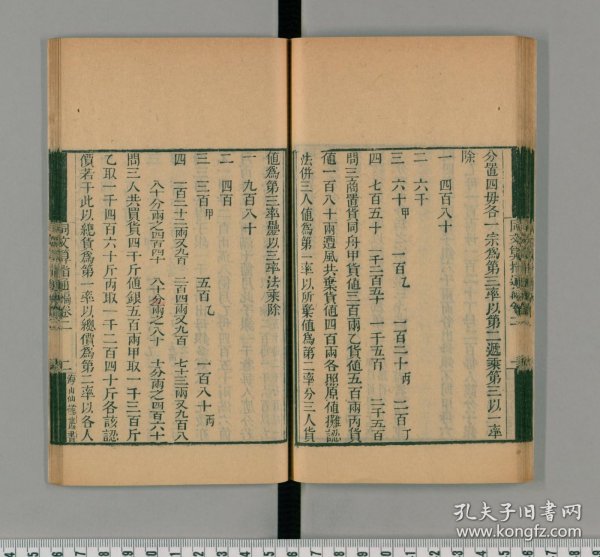 分置四毋各一宗為第三率以第二遞乘第三以一率
除
一　四百八十
二　六千
三　六十甲　一百乙　一百二十丙　二百丁
四　七百五十　一千二百五十　一千五百　二千五百
問三商置貨同舟甲貨值三百兩乙貨值五百兩丙貨
值一百八十兩遭風共棄貨值四百兩各照原值攤認
法併三人值為第一率以所棄值為第二率分三人貨
值為第三率疊以三率法乘除
一　九百八十
二　四百
三　三百甲　五百乙　一百八十丙
四　一百二十二兩又九百　二百四兩又九百　七十三兩又九百八
八十分兩之四百四十　八十分兩之八十　十分兩之四百六十
問三人共買貨四千斤值銀五百兩甲取一千三百斤
乙取一千四百六十斤丙取一千二百四十斤各該認
價若干此以總貨為第一率以總價為第二率以各人
同文算指通編卷二
二
海山仙館叢書
孔夫子旧书网
www.kongfz.com